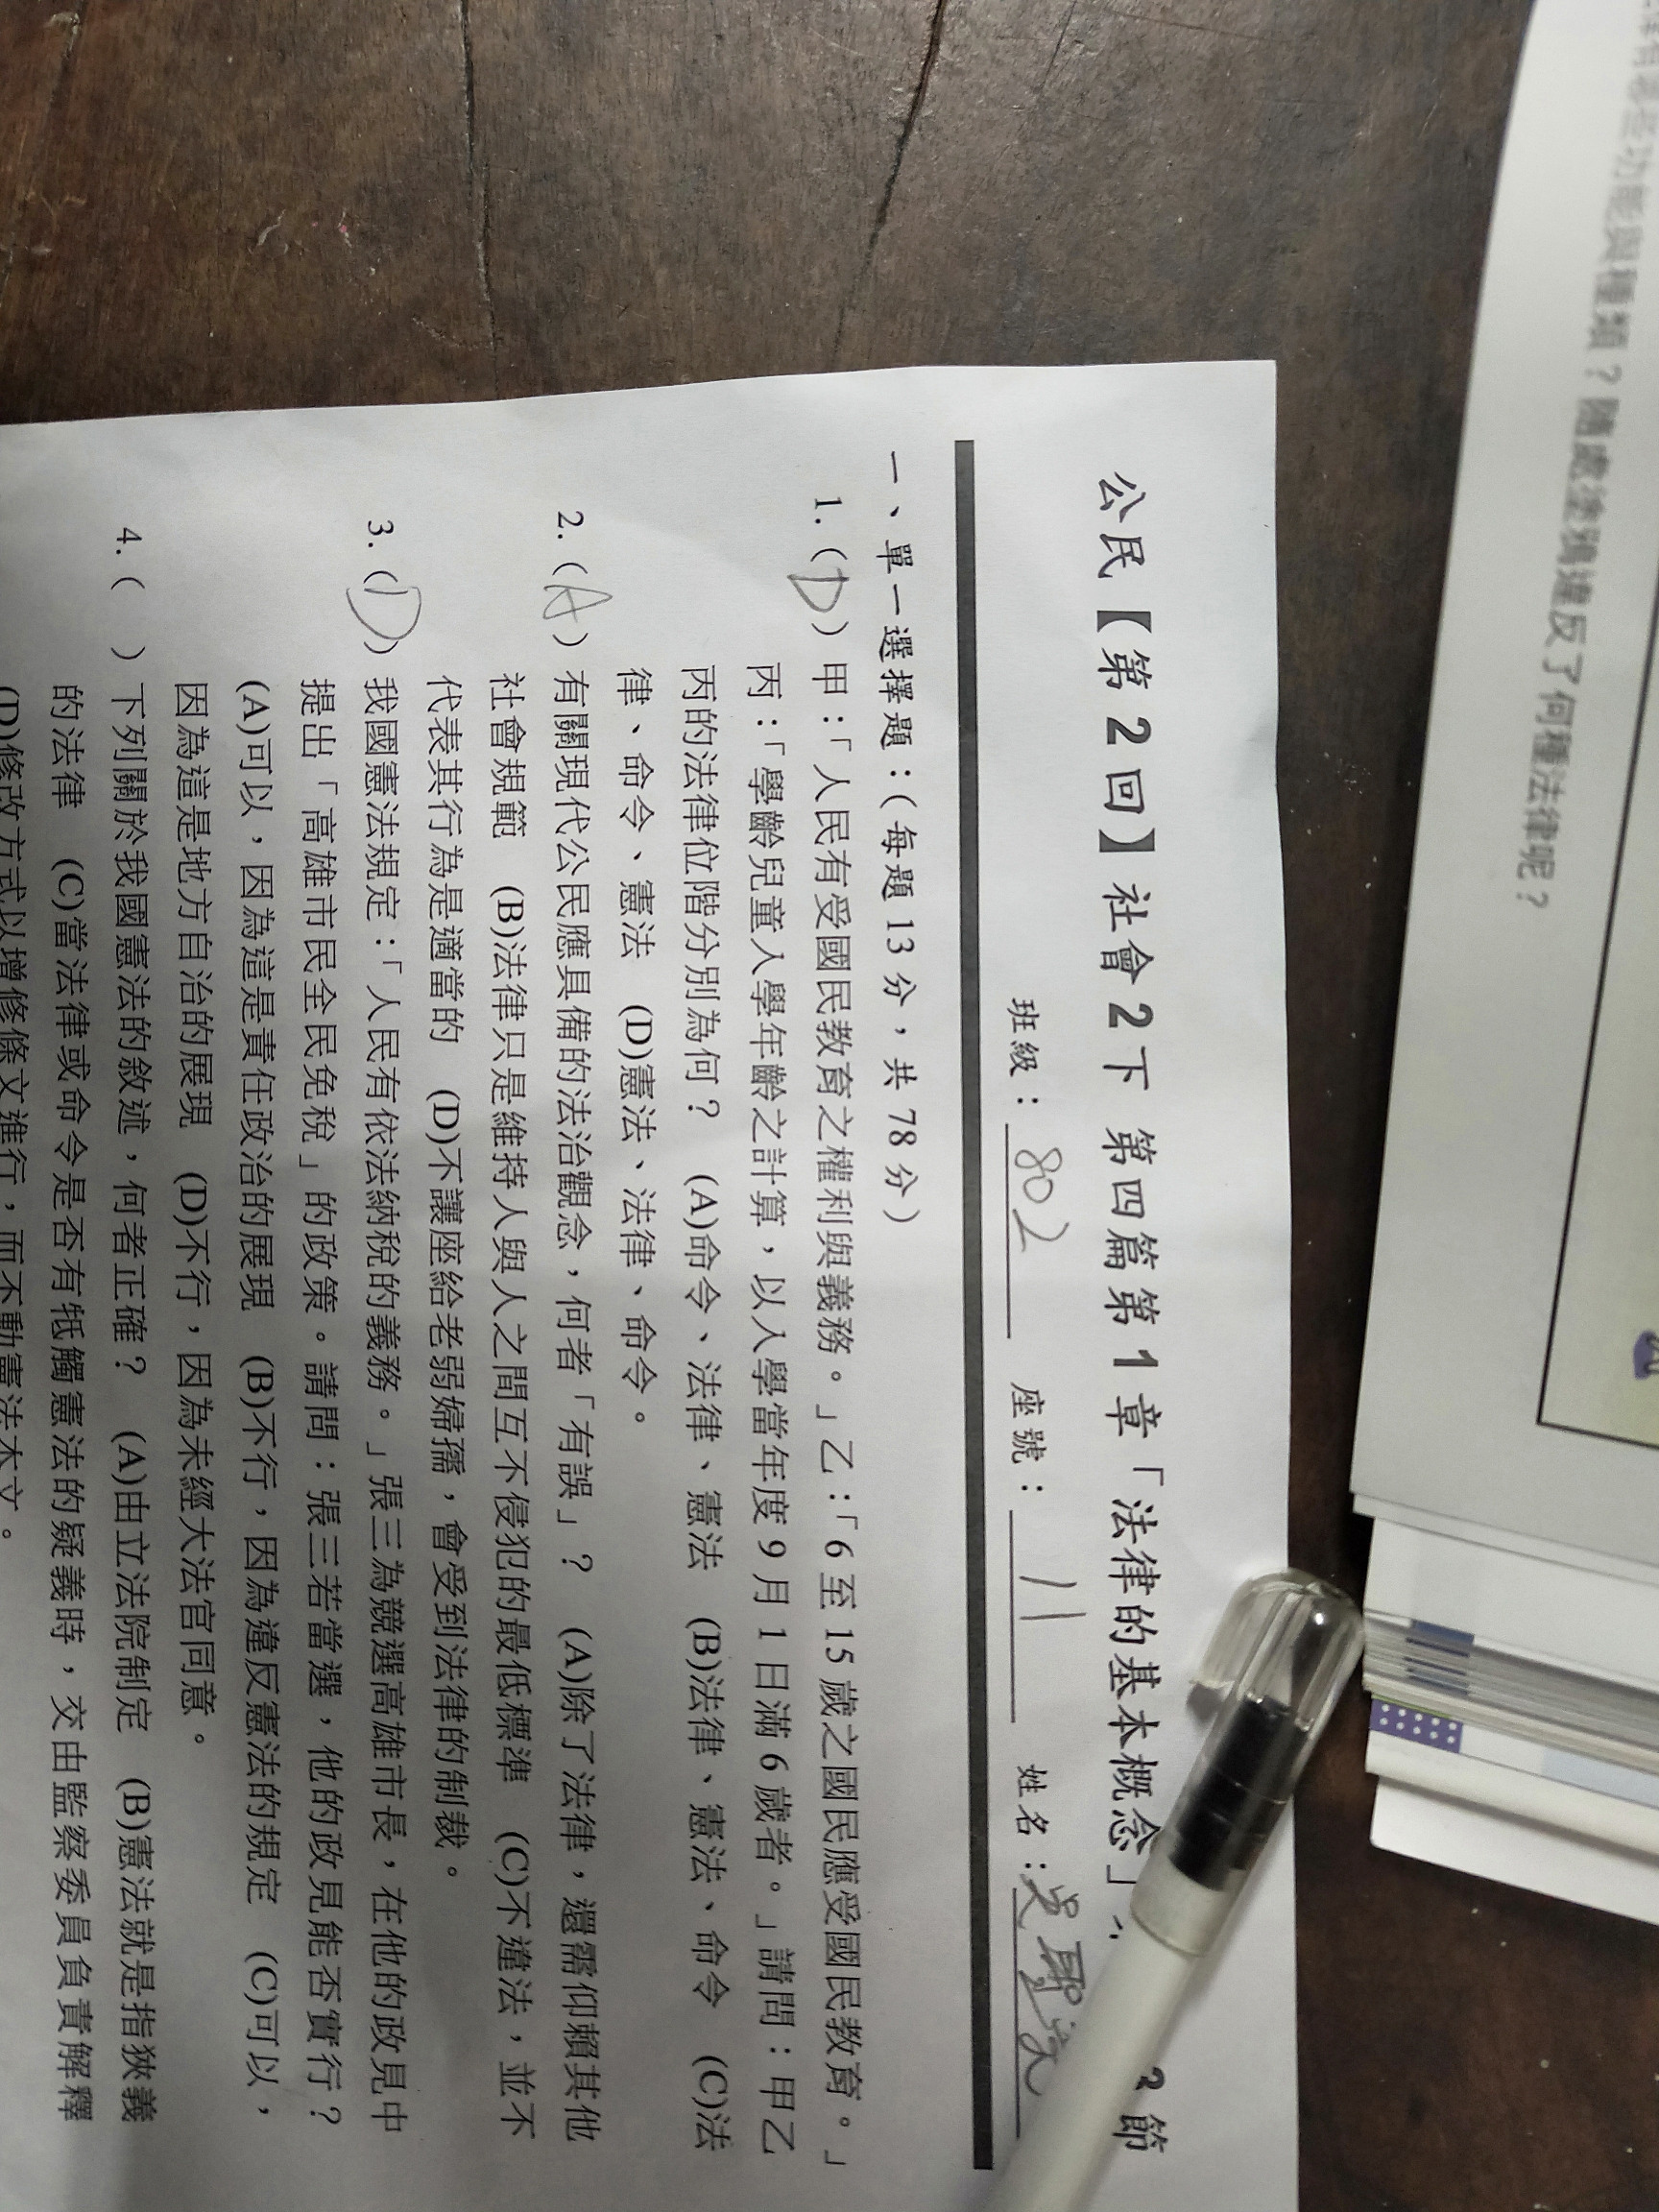 有哪些功能與種類？隨處塗鴉違反了何種法律呢？
公民【第 2 回】社會 2 下 第四篇第 1 章「法律的基本概念」 節
班級：802 座號：11 姓名：吳
一、單一選擇題：(每題 13 分，共 78 分)
1. (D) 甲：「人民有受國民教育之權利與義務。」乙：「6 至 15 歲之國民應受國民教育。」
丙：「學齡兒童入學年齡之計算，以入學當年度 9 月 1 日滿 6 歲者。」請問：甲乙
丙的法律位階分別為何？ (A)命令、法律、憲法 (B)法律、憲法、命令 (C)法
律、命令、憲法 (D)憲法、法律、命令。
2. (A) 有關現代公民應具備的法治觀念，何者「有誤」？ (A)除了法律，還需仰賴其他
社會規範 (B)法律只是維持人與人之間互不侵犯的最低標準 (C)不違法，並不
代表其行為是適當的 (D)不讓座給老弱婦孺，會受到法律的制裁。
3. (D) 我國憲法規定：「人民有依法納稅的義務。」張三為競選高雄市長，在他的政見中
提出「高雄市民全民免稅」的政策。請問：張三若當選，他的政見能否實行？
(A)可以，因為這是責任政治的展現 (B)不行，因為違反憲法的規定 (C)可以，
因為這是地方自治的展現 (D)不行，因為未經大法官同意。
4. ( ) 下列關於我國憲法的敘述，何者正確？ (A)由立法院制定 (B)憲法就是指狹義
的法律 (C)當法律或命令是否有牴觸憲法的疑義時，交由監察委員負責解釋
(D)修改方式以增修條文進行，而不動憲法本文。